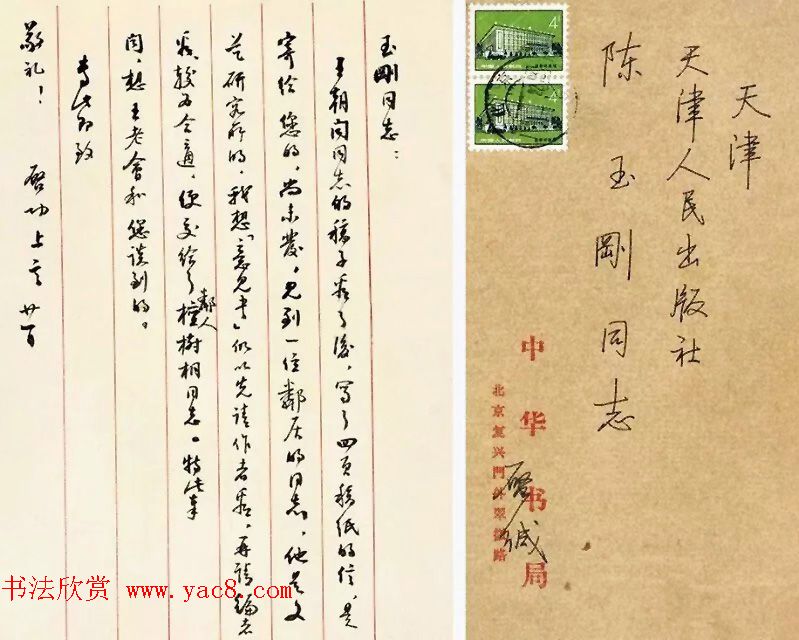 玉刚同志：
王朝闻同志的稿子看了后，写了四页稿纸的信，是
寄给您的，尚未发，见到一位邻居的同志，他是文
艺研究所的，我想「意见书」似以先请作者看，再请编者
看，较为合适，便交给了
树桐同志。特此奉
邻人
闻，想王老会和您谈到的。
专此即致
敬礼！
启功上言 廿日
天津
天津人民出版社
陈玉刚同志
中华书局
北京复兴门外翠微路
启缄
书法欣赏 www.yac8.com